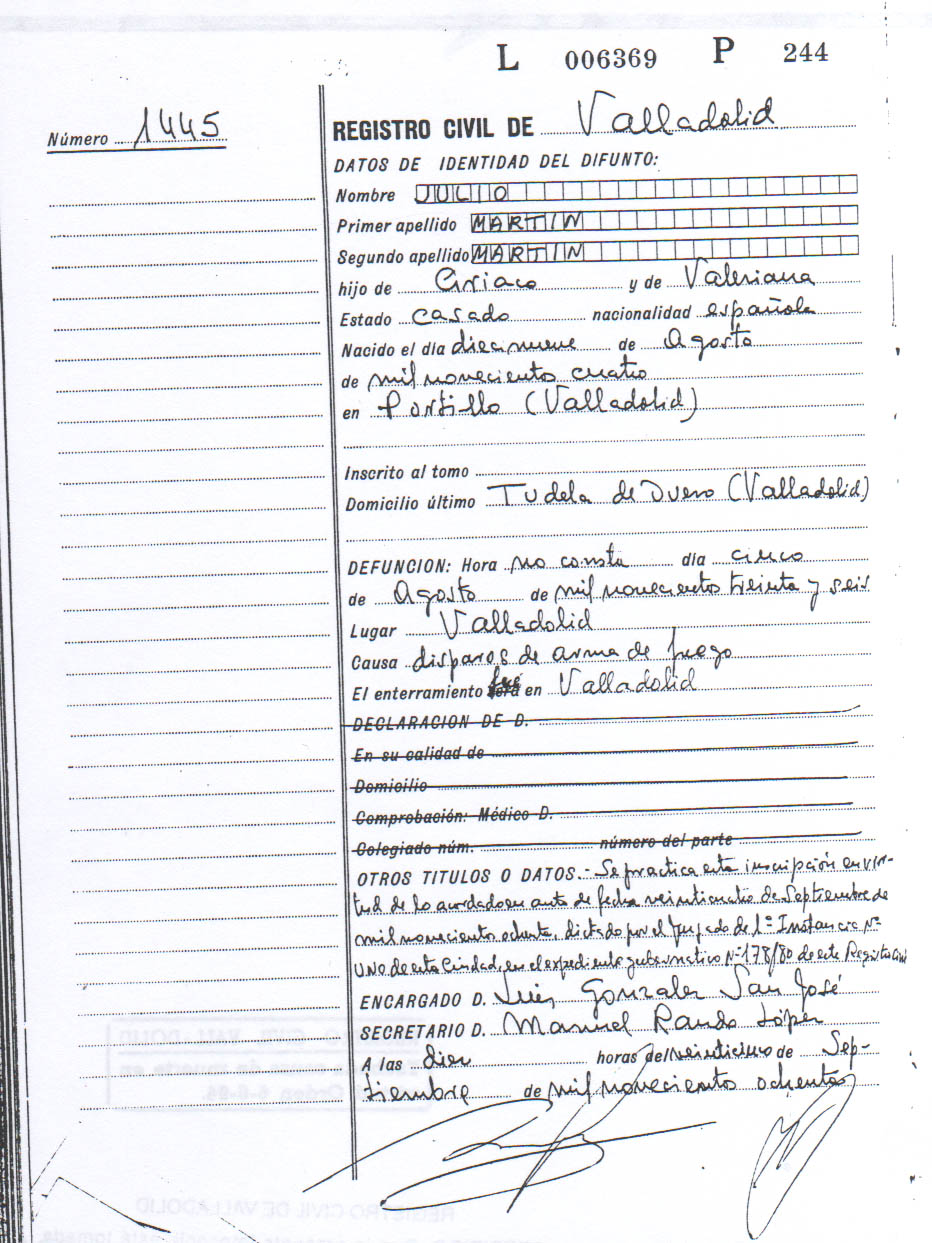 L 006369 P 244
Número 1445
REGISTRO CIVIL DE Valladolid
DATOS DE IDENTIDAD DEL DIFUNTO:
Nombre JULIO
Primer apellido MARTIN
Segundo apellido MARTIN
hijo de Ciriaco y de Valeriana
Estado casado nacionalidad española
Nacido el día diecinueve de Agosto
de mil novecientos cuatro
en Portillo (Valladolid)
Inscrito al tomo
Domicilio último Tudela de Duero (Valladolid)
DEFUNCION: Hora no consta día cinco
de Agosto de mil novecientos treinta y seis
Lugar Valladolid
Causa disparos de arma de fuego
El enterramiento fué en Valladolid
DECLARACION DE D.
En su calidad de
Domicilio
Comprobación: Médico D.
Colegiado núm. número del parte
OTROS TITULOS O DATOS.- Se practica esta inscripción en vir-
tud de lo acordado en auto de fecha veinticuatro de Septiembre de
mil novecientos ochenta, dictado por el Juzgado de 1ª Instancia Nº
UNO de esta Ciudad, en el expediente gubernativo Nº 178/80 de este Registro Civil
ENCARGADO D. Luis Gonzalez San José
SECRETARIO D. Manuel Rando López
A las diez horas del veinticinco de Sep-
tiembre de mil novecientos ochenta
REGISTRO CIVIL VALLADOLID
REGISTRO CIVIL DE VALLADOLID